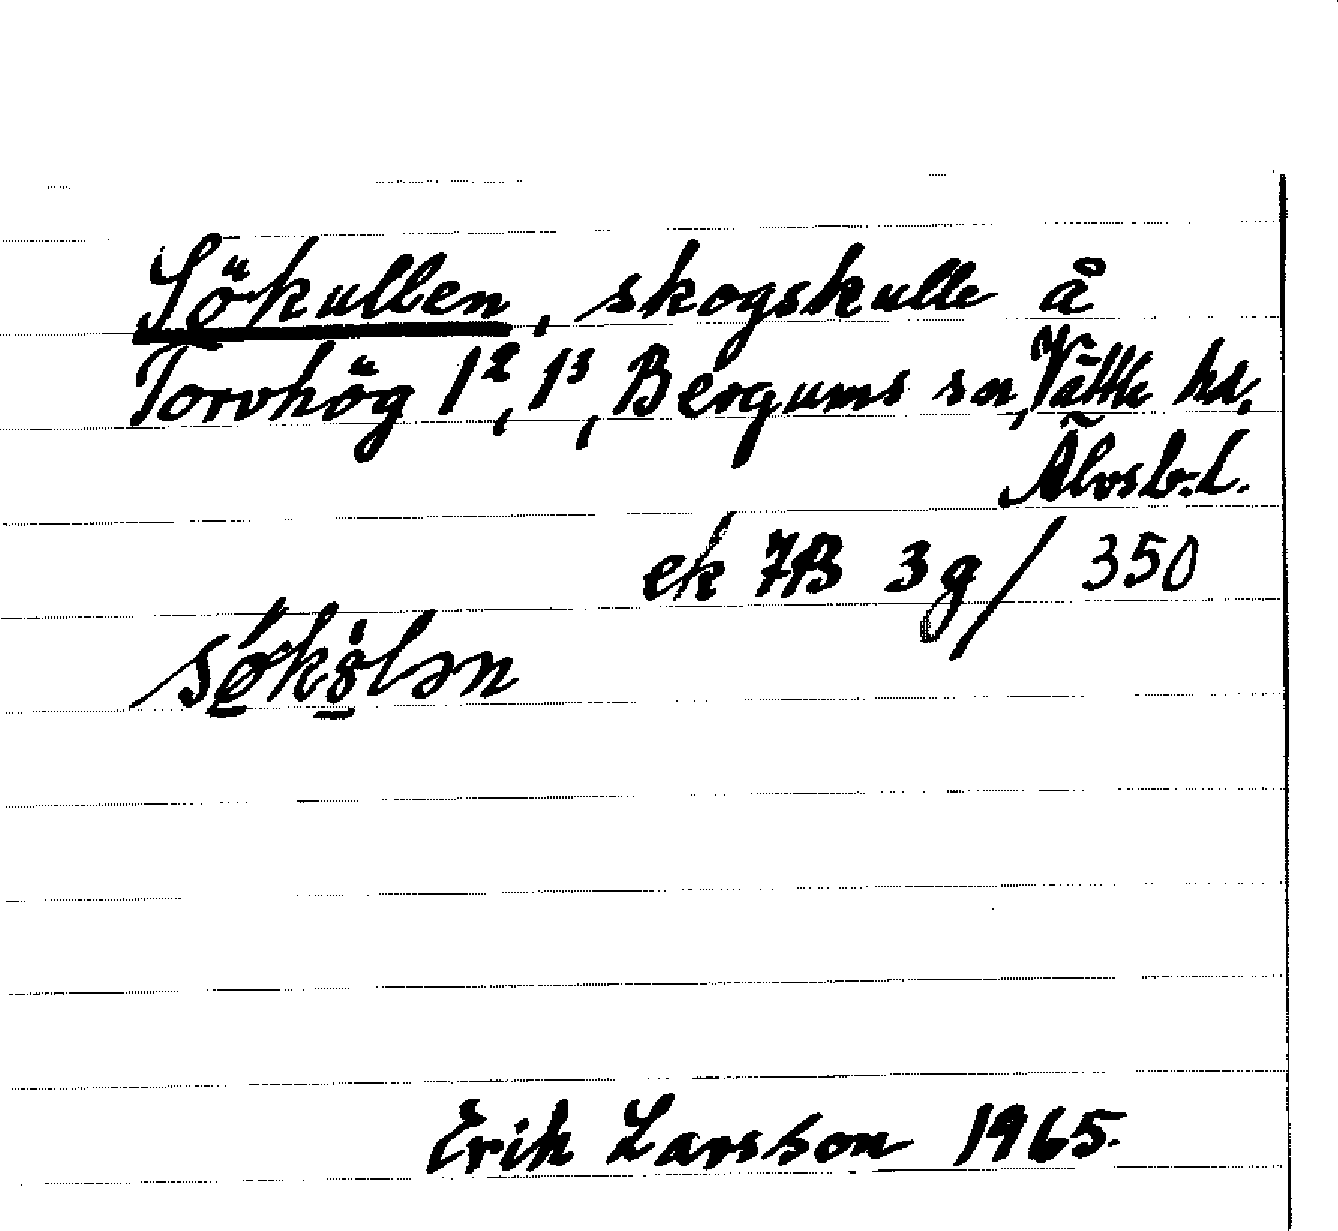 Sökullen, skogskulle å
Torvhög 1², 1³, Bergums sn, Vättle hd,
Älvsb.L.
ek 7B 3g/350
søk8lən
Erik Larsson 1965.